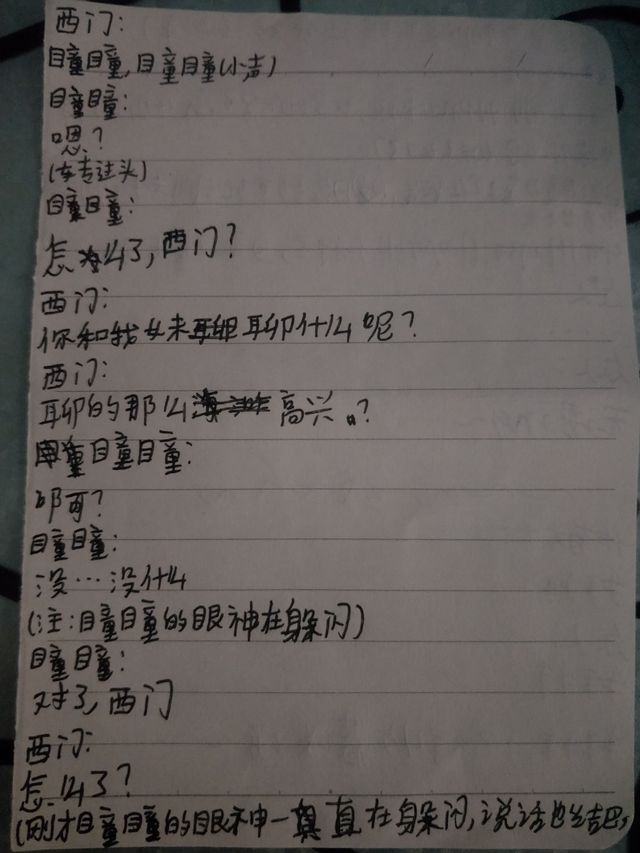 西门:
瞳瞳,瞳瞳(小声)
瞳瞳:
嗯?
(转过头)
瞳瞳:
怎么了,西门?
西门:
你和我女未聊什么呢?
西门:
聊的那么高兴。?
瞳瞳:
啊?
瞳瞳:
没…没什么
(注:瞳瞳的眼神在躲闪)
瞳瞳:
对了,西门
西门:
怎么了?
(刚才瞳瞳的眼神一直在躲闪,说话也结巴,